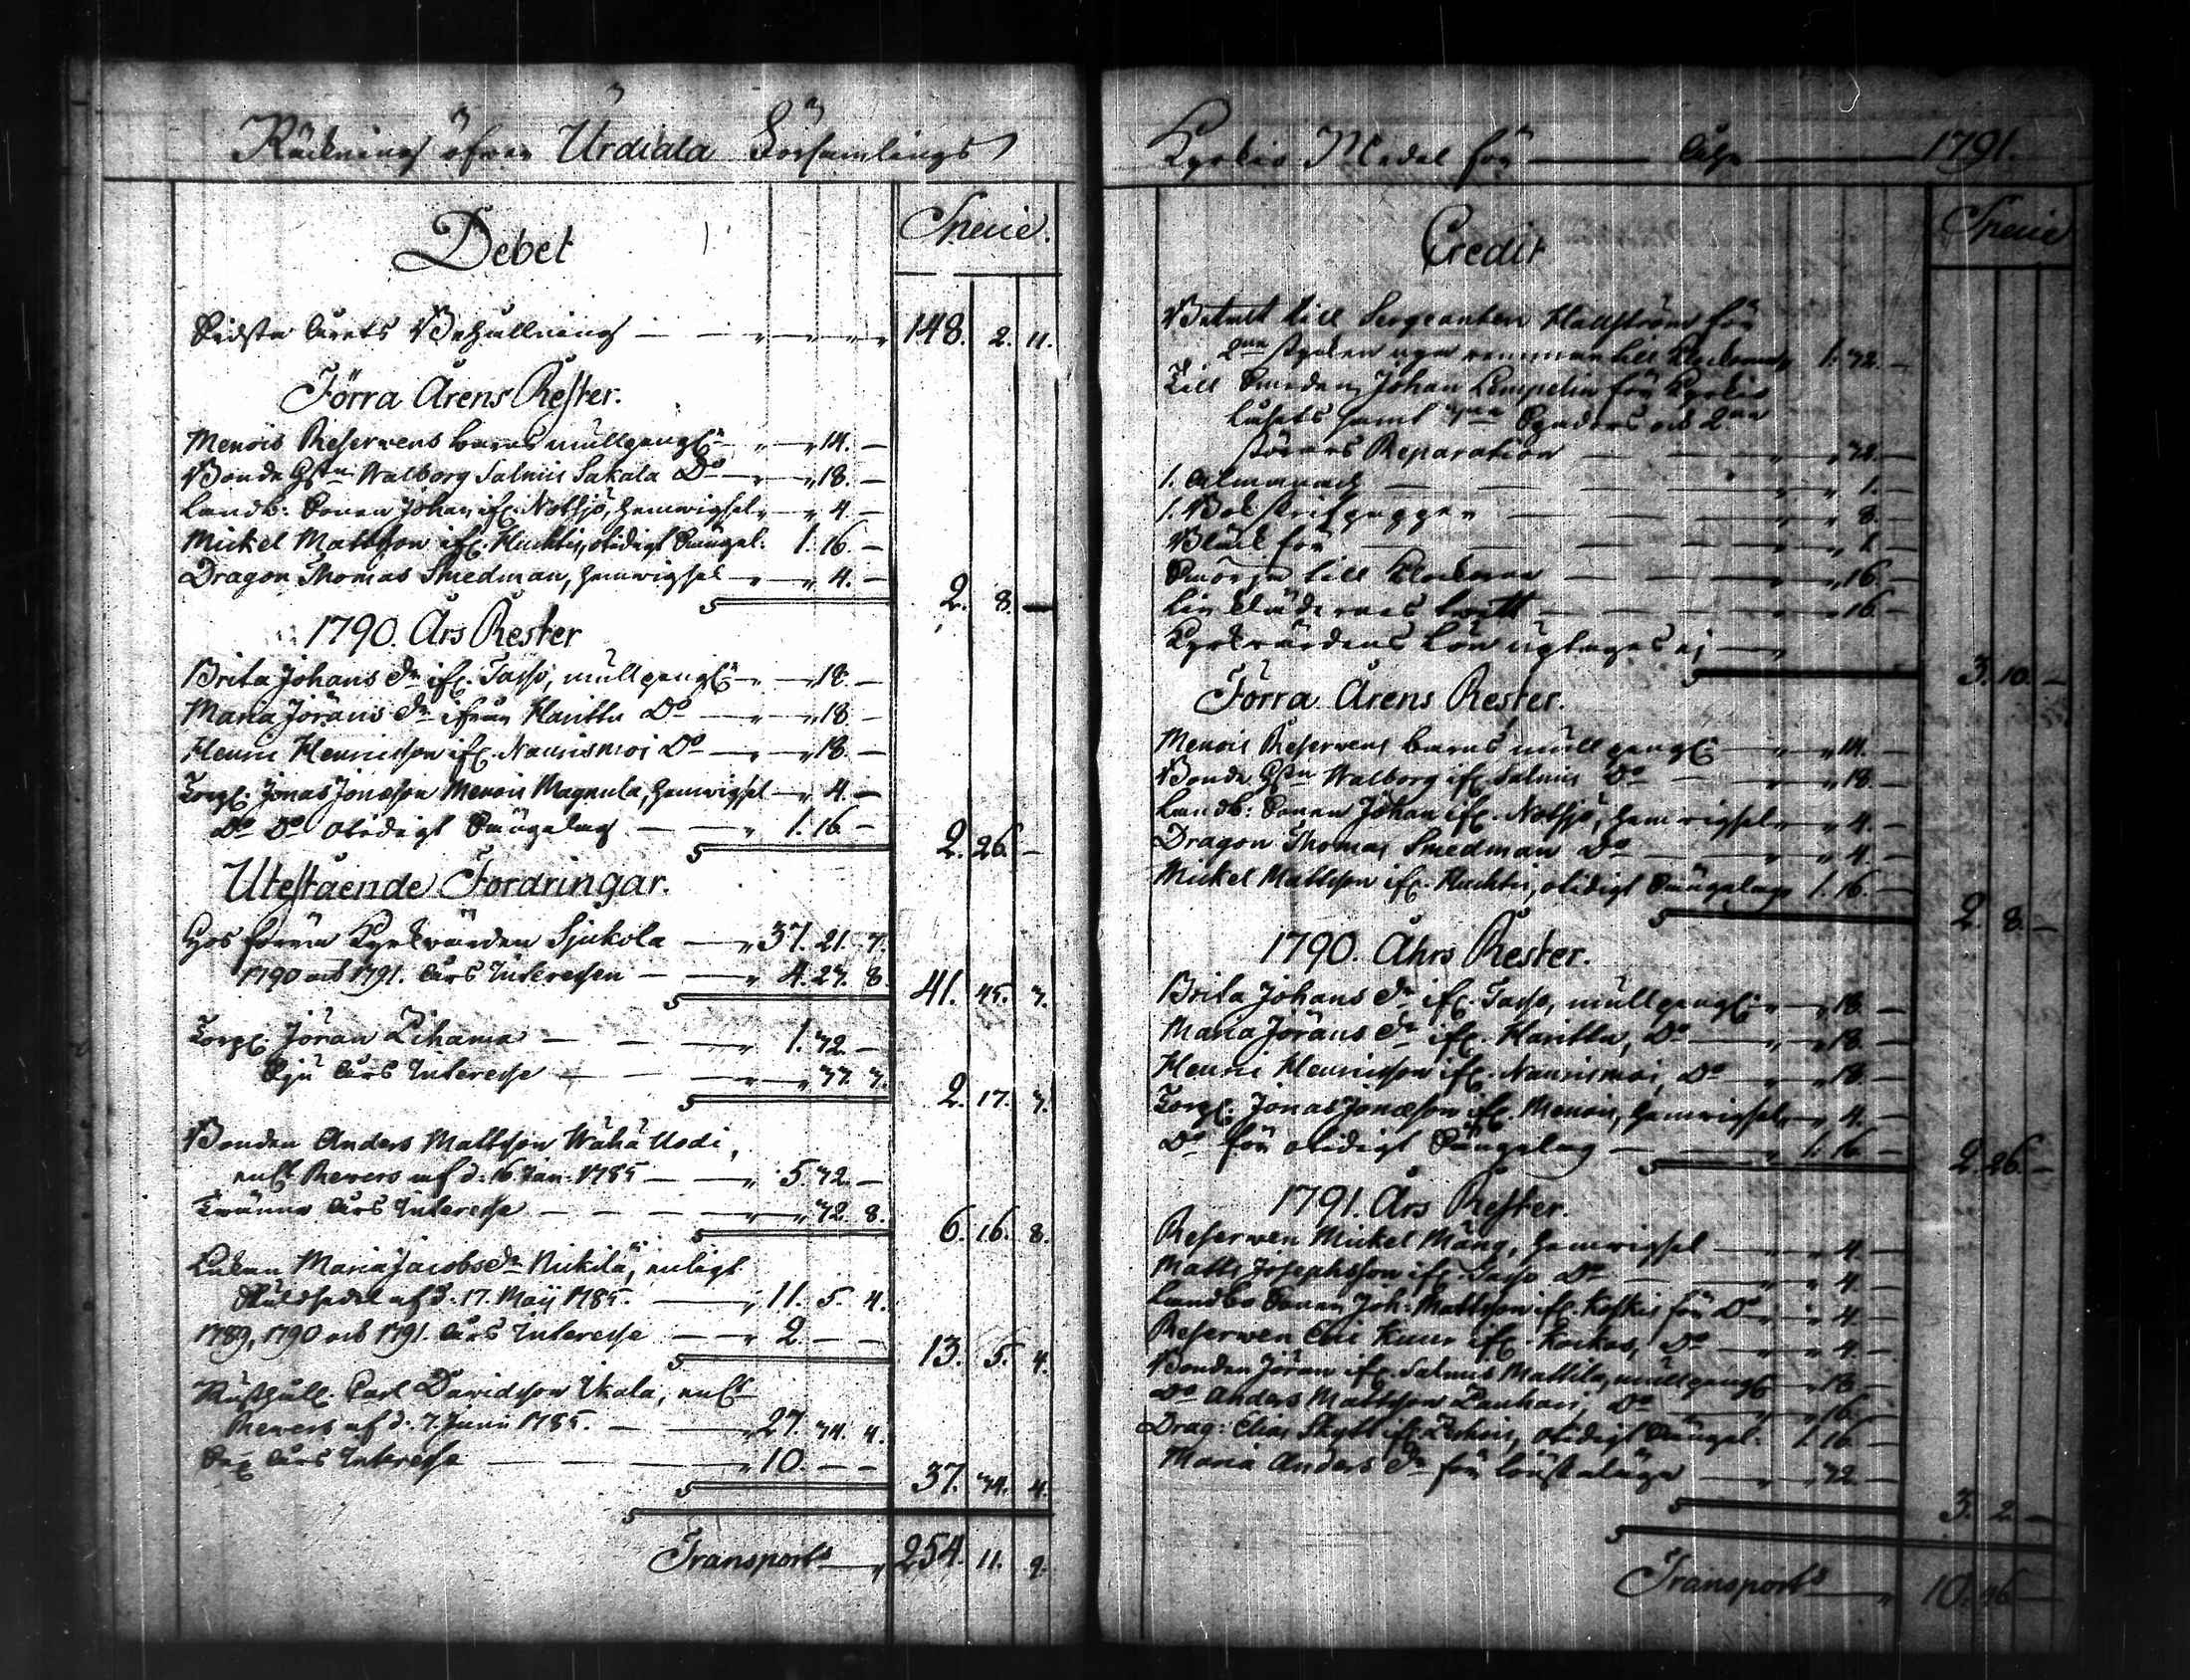 Räkning öfver Urdiala Församlings
Debet
Specie.
Sidsta Årets Behållning — 148. 2. 11.
Förra Årens Rester.
Menois Reserwens barns mullpengr — 14. —
Bonde Hstn Walborg Salmis Sakala Do — 18. —
Landb: Sonen Johan ifr. Notsjö, hemvigsel — 4. —
Mickel Mattsson ifr. Huchtis, otidigt Sängel. 1. 16. —
Dragon Thomas Smedman, hemvigsel — 4. —
2. 8. —
1790. Års Rester
Brita Johans dr ifr. Tasso, mullpengr — 18. —
Maria Jörans dr ifrån Hanittu Do — 18. —
Henric Henricsson ifr. Naurismoi Do — 18. —
Torp. Jonas Jonæson Menois Magnula, hemvigsel — 4. —
Do Do otidigt Sängelag — 1. 16. —
2. 26. —
Utestående Fordringar.
Hos förra Kyrkvärden Sjukola — 37. 21. 7.
1790 och 1791. Års Interessen — 4. 27. 8.
41. 45. 7.
Torp. Jöran — 1. 42. —
Sju Års Interesse — 47. 7.
2. 17. 7.
Bonden Anders Mattsson Wähä Uodi,
enl. Revers af d. 16 Jan. 1785 — 5. 42. —
Tränne Års Interesse — 42. 8.
6. 16. 8.
Enkan Maria Jacobs dr Nickilä, enligt
Skuldsedel af d. 17. Maij 1785. — 11. 5. 4.
1789, 1790 och 1791. Års Interesse — 2. — —
13. 5. 4.
Rusthåll. Carl Davidsson Ikala, enl.
Revers af d. 7. Junii 1785. — 27. 44. 4.
Sex Års Interesse — 10. — —
37. 44. 4.
Transport — 254. 11. 9.
Kyrkio Medel för — Åhr — 1791.
Credit
Specie
Betalt till Sergeanten Hallström för
2ne stycken nya remmar till Klockorne 1. 42. —
Till Smeden Johan Lempelin för Kyrkio
Reparation — 42. —
1. Almanach — 1. —
1. Bok skrifpapper — 8. —
Bläck för — 1. —
Smörja till Klockorne — 16. —
Linklädernas twätt — 16. —
Kyrkvärdens Lön uptages ej —
3. 10. —
Förra Årens Rester.
Menois Reserwens barns mullpengr — 14. —
Bonde Hstn Walborg ifr. Salmis Do — 18. —
Landb: Sonen Johan ifr. Notsjö, hemvigsel — 4. —
Dragon Thomas Smedman Do — 4. —
Mickel Mattsson ifr. Huchtis, otidigt Sängelag 1. 16. —
2. 8. —
1790. Åhrs Rester.
Brita Johans dr ifr. Tasso, mullpengr — 18. —
Maria Jörans dr ifr. Hanittu, Do — 18. —
Henric Henricsson ifr. Naurismoi, Do — 18. —
Torp. Jonas Jonæson ifr. Menois, hemvigsel — 4. —
Do för otidigt Sängelag — 1. 16. —
2. 26. —
1791. Års Rester.
Reserwen Mickel Mäng, hemvigsel — 4. —
Matts Josephsson ifr. Tasso Do — 4. —
Landbo Sonen Joh: Mattsson ifr. Koskis för Do — 4. —
Reserwen Eric Kuur ifr. Koikas, Do — 4. —
Bonden Jöran ifr. Salmis Mattila, mullpengr — 18. —
Do Anders Mattsson Do — 16. —
Drag: Elias Skytt otidigt Sängel. 1. 16. —
Maria Anders dr för — 42. —
3. 2. —
Transport — 10. 46. —